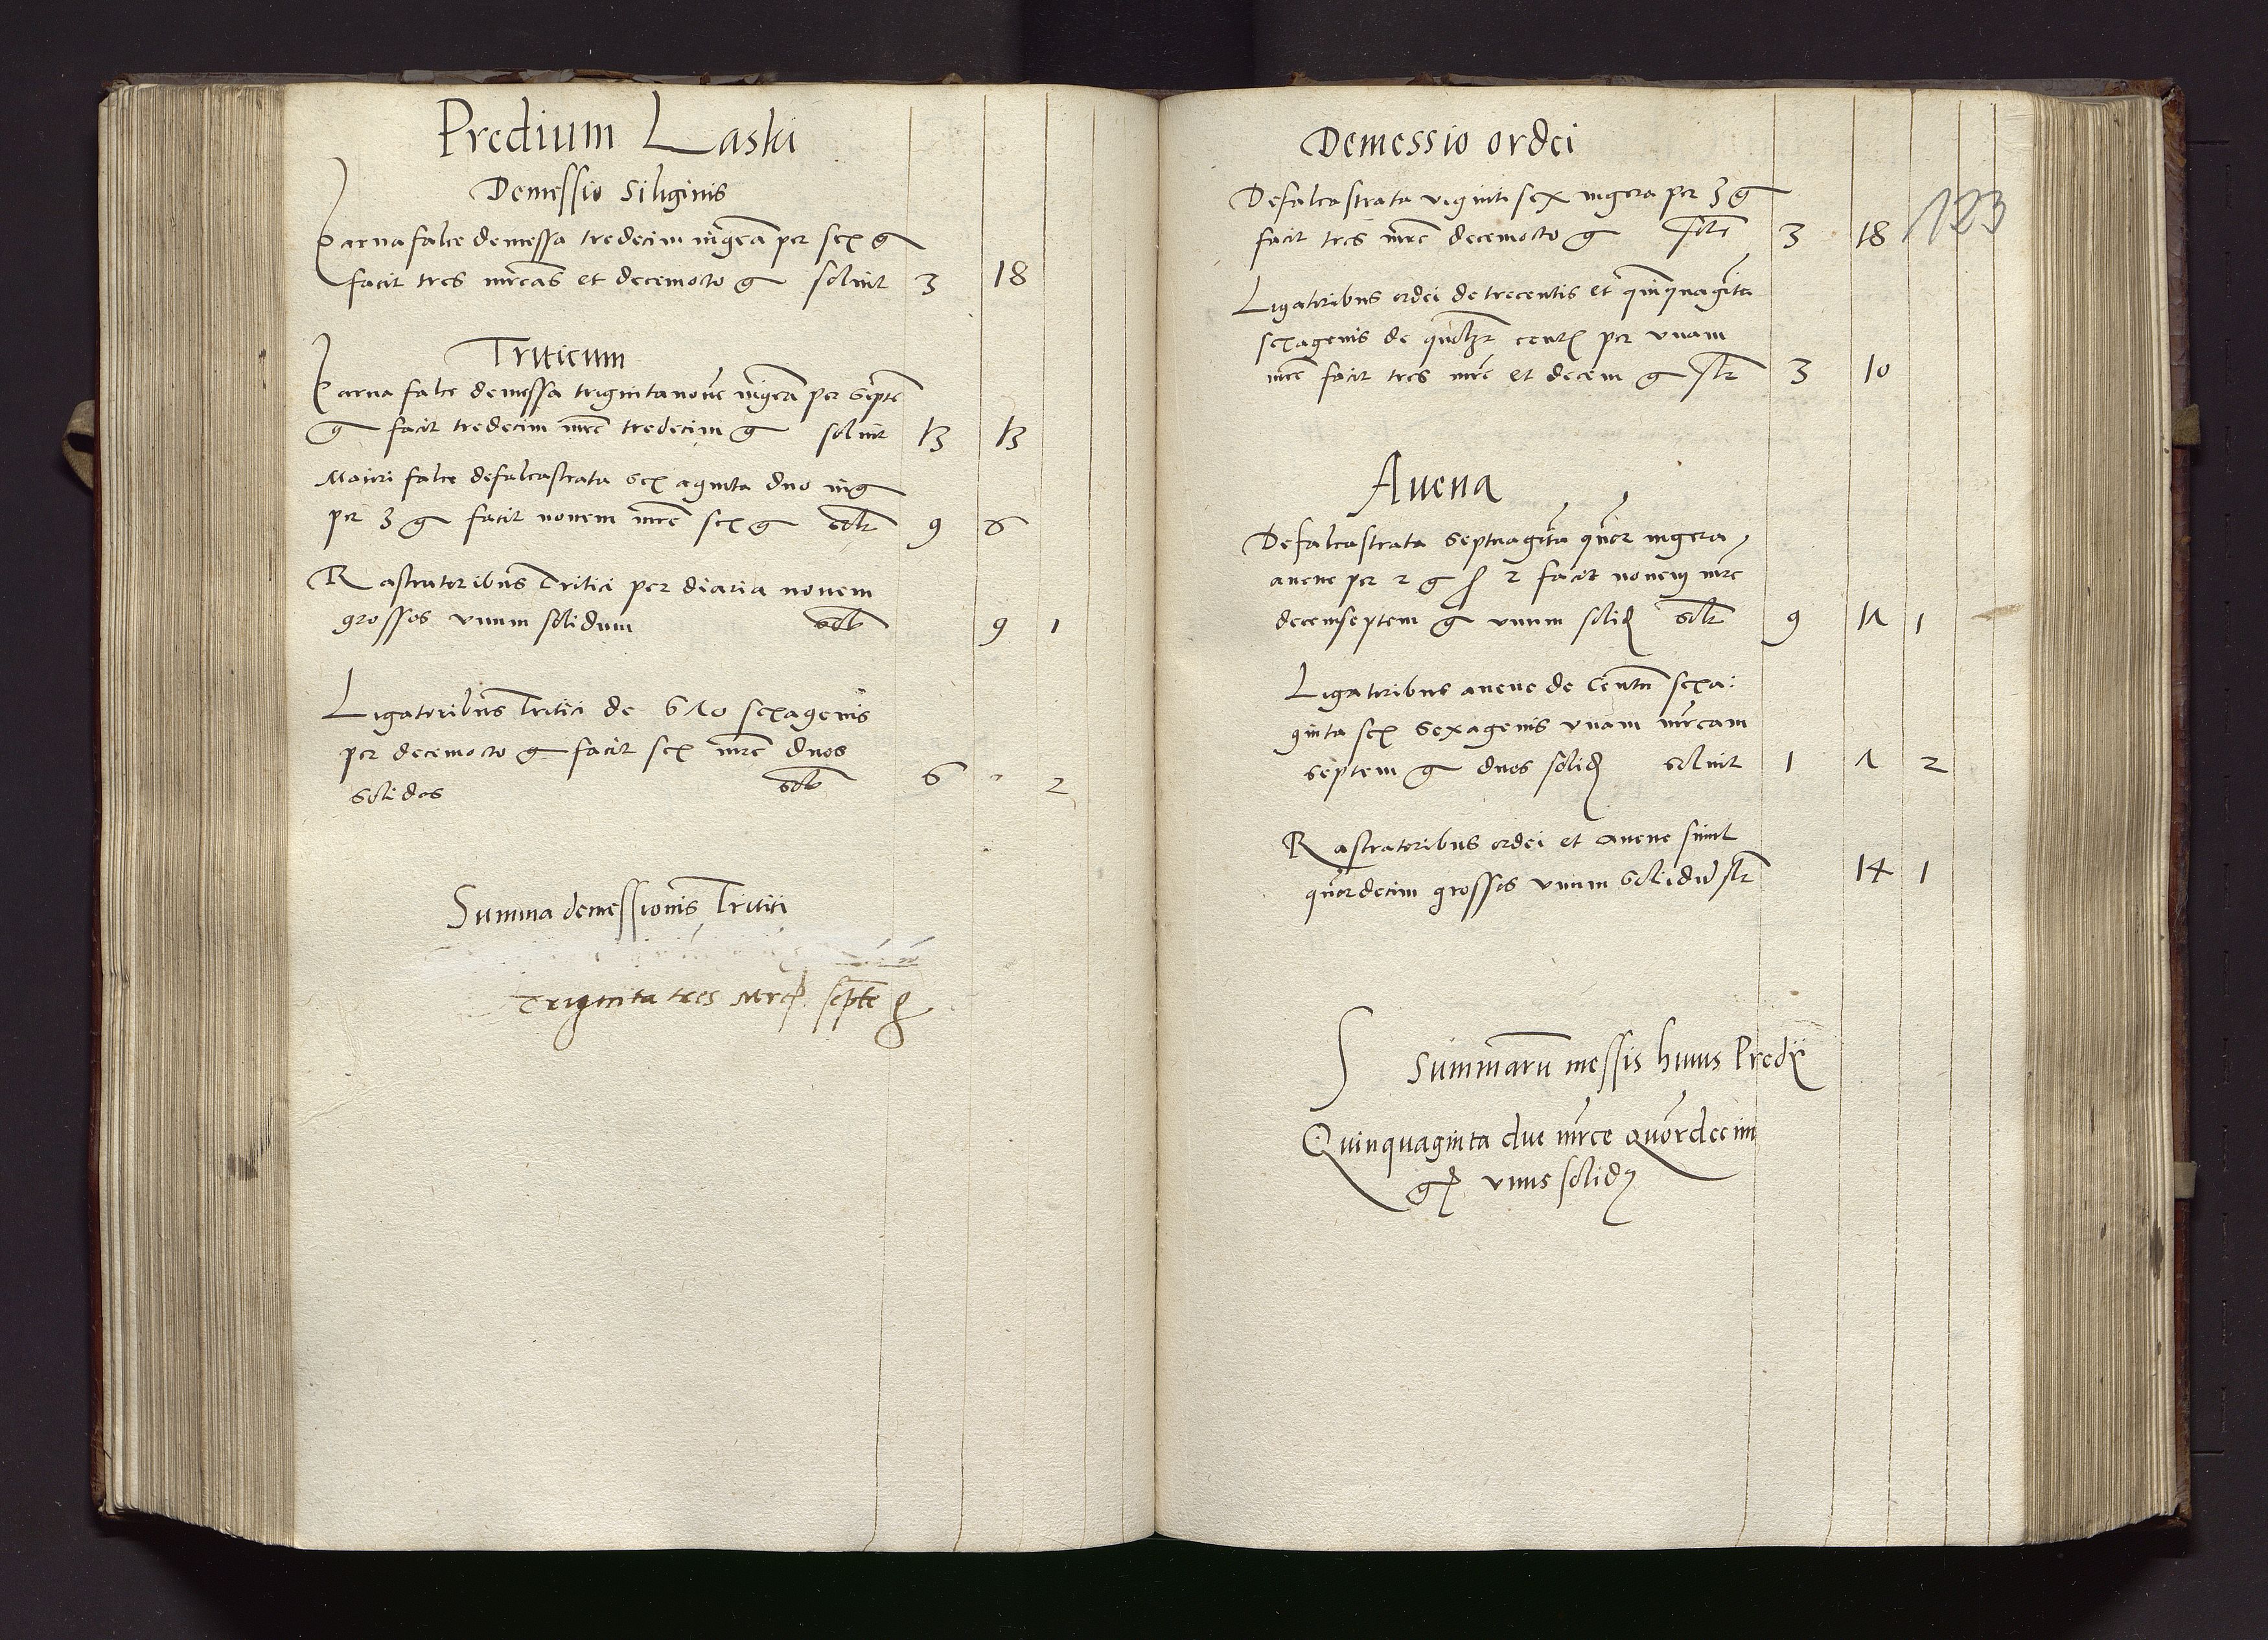 Predium Laski
Demessio siliginis
Parva falce demessa tredecim iugera per sex g
facit tres mrcas et decemocto g solvit 3 18
Triticum
Parva falce demessa triginta nove iugera per septe
g facit tredecim mrc tredecim g solvit 13 13
Maiori falce defalcastrata sex aginta duo iug
per 3 g facit novem mrc sex g solt 9 6
Rastratoribus Tritici per diaria novem
grossos unum solidum solt 9 1
Ligatoribus Tritici de 670 sexagenis
per decemocto g facit sex mrc duos
solidos solt 6 - 2
Summa demessionis Tritici
Triginta tres Mrc septe g
Demessio ordei
Defalcastrata viginti sex iugera per 3 g
facit tres mrc decemocto g solt 3 18
123
Ligatoribus ordei de trecentis et quinquaginta
sexagenis de quolt cent per unam
mrc facit tres mrc et decem g slt 3 10
Avena
Defalcastrata septuaginta quor iugera
avene per 2 g s 2 facit novem mrc
decemseptem g unum solid solt 9 17 1
Ligatoribus avene de Centu sexa:
ginta sex sexagenis unam mrcam
septem g duos solid solvit 1 7 2
Rastratoribus ordei et avene simul
quordecim grossos unum solidu slt 14 1
S Summaru messis huius Predii
Quinquaginta due mrce quordecim
g unus solid